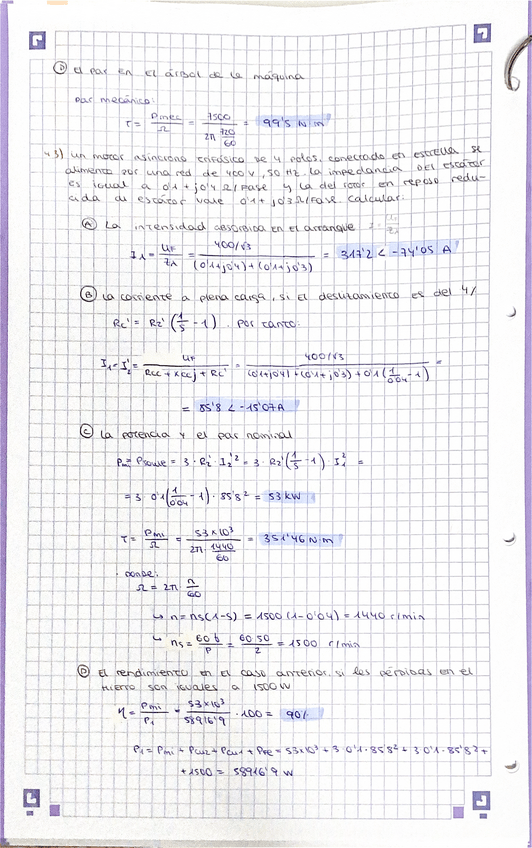 D El par en el árbol de la máquina
par mecánico:
τ = Pmec/Ω = 7500/(2π 720/60) = 99'5 N·m
43) un motor asíncrono trifásico de 4 polos, conectado en estrella se
alimenta por una red de 400V, 50 Hz. la impedancia del estator
es igual a 0'1+j0'4 Ω/Fase y la del rotor en reposo redu-
cida al estator vale 0'1+j0'3 Ω/Fase. Calcular:
A La intensidad absorbida en el arranque
I1 = UF/Z1 = (400/√3)/((0'1+j0'4)+(0'1+j0'3)) = 317'2 < -74'05 A
B La corriente a plena carga, si el deslizamiento es del 4%
Rc' = R2' (1/S - 1). Por tanto:
I1 = I2' = UF/(Rcc + Xccj + Rc') = (400/√3)/((0'1+j0'4)+(0'1+j0'3)+0'1(1/0'04 - 1)) =
= 85'8 < -15'07 A
C La potencia y el par nominal
Pmi = 3 · Rc' · I2'² = 3 · R2' (1/S - 1) · I1² =
= 3 · 0'1 (1/0'04 - 1) · 85'8² = 53 kW
τ = Pmi/Ω = 53×10³/(2π · 1440/60) = 351'46 N·m
· donde:
Ω = 2π · n/60
↳ n = ns(1-S) = 1500 (1-0'04) = 1440 r/min
↳ ns = 60 f/P = 60·50/2 = 1500 r/min
D El rendimiento en el caso anterior, si las pérdidas en el
hierro son iguales a 1500 W
η = Pmi/P1 = 53×10³/58916'9 · 100 = 90%
P1 = Pmi + Pcu2 + Pcu1 + PFe = 53×10³ + 3·0'1·85'8² + 3·0'1·85'8² +
+ 1500 = 58916'9 W